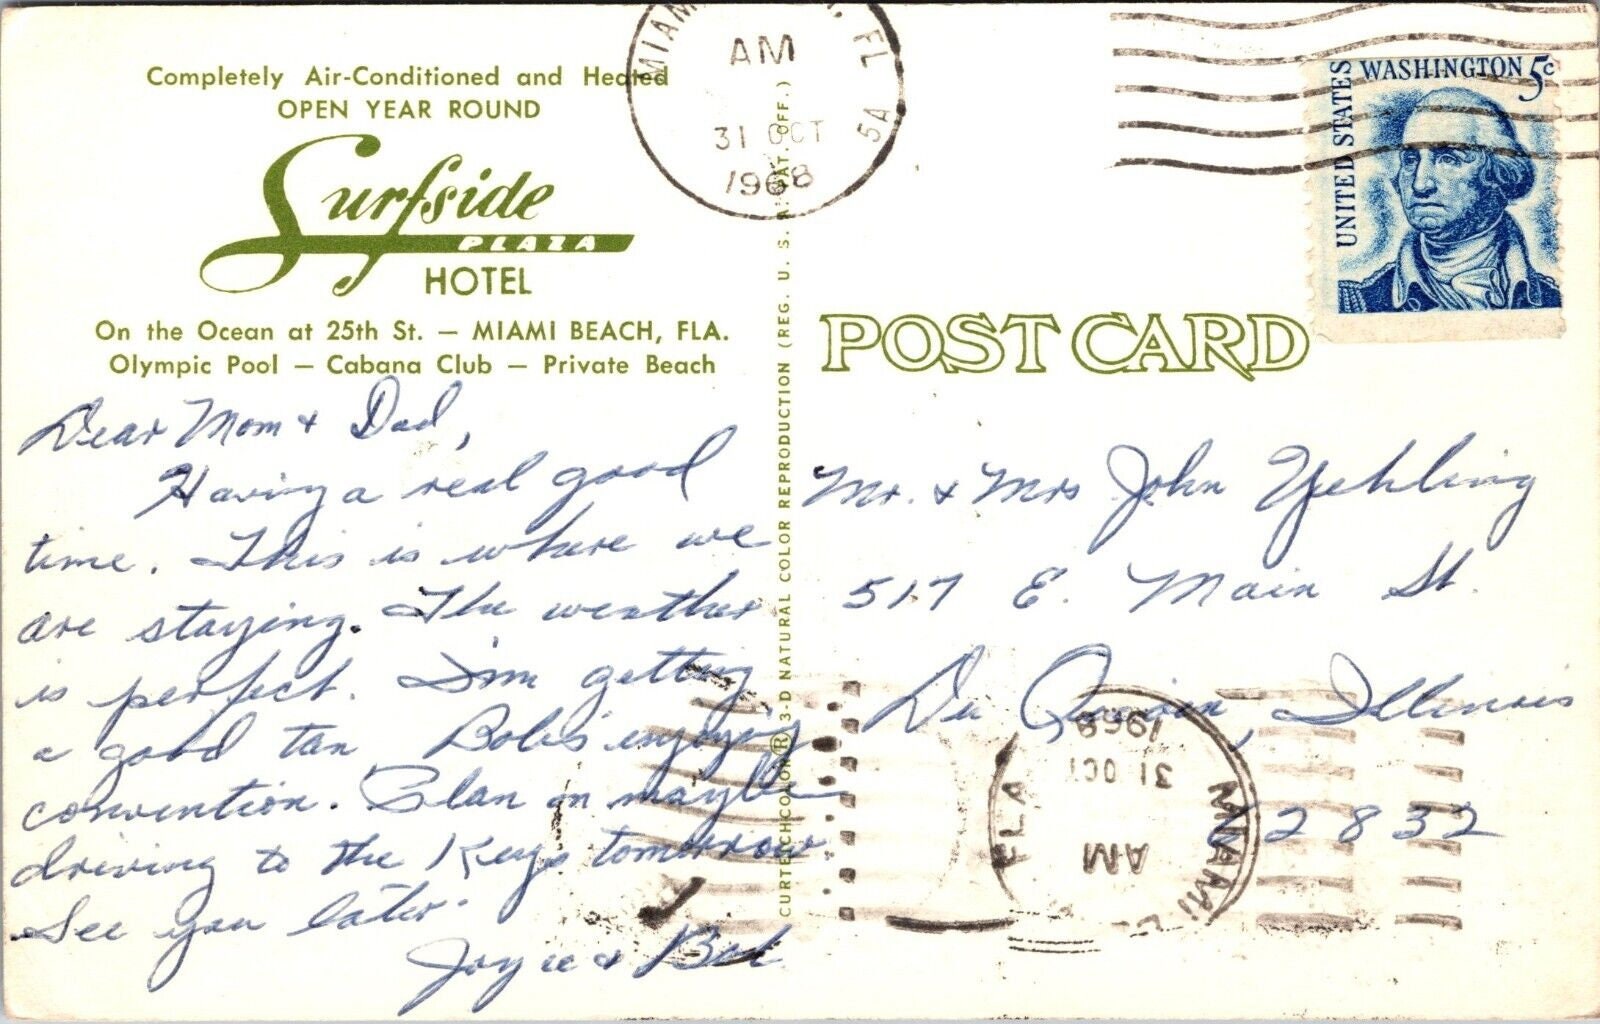 Completely Air-Conditioned and Heated
OPEN YEAR ROUND
Surfside
PLAZA
HOTEL
On the Ocean at 25th St. — MIAMI BEACH, FLA.
Olympic Pool — Cabana Club — Private Beach
Dear Mom & Dad,
Having a real good
time. This is where we
are staying. The weather
is perfect. I'm getting
a good tan Bob's enjoying
convention. Plan on maybe
driving to the Keys tomorrow.
See you later.
Joyce & Bob
CURTEICHCOLOR® 3-D NATURAL COLOR REPRODUCTION (REG. U. S. PAT. OFF.)
MIAMI FL
AM
31 OCT
1968
5A
UNITED STATES
WASHINGTON 5c
POST CARD
Mr. & Mrs John Yehling
517 E. Main St.
Du Quoin, Illinois
62832
MIAMI FLA
AM
31 OCT
1968